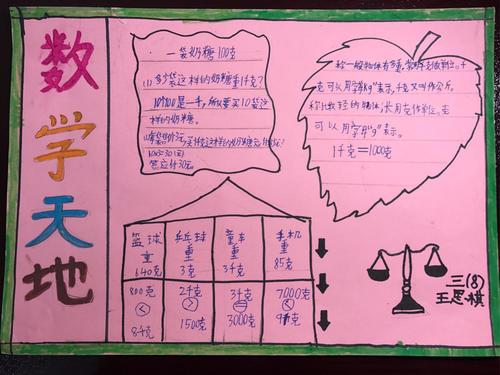 数学天地
一袋奶糖100克
(1)多少袋这样的奶糖重1千克?
10个100是一千,所以要买10袋这
样的奶糖。
10×3=30(元)
答应付30元。
称一般物体有多重,常用千克做单位。千
克可以用字母"kg"表示,千克又叫作公斤。
称比较轻的物体,长用克作单位。克
可以用字母"g"表示。
1千克=1000克
篮球重640克
乒乓球重3克
童车重3千克
手机重85克
800克<8千克
2千克>1500克
3千克=3000克
7000克<9千克
三(8)
王思棋